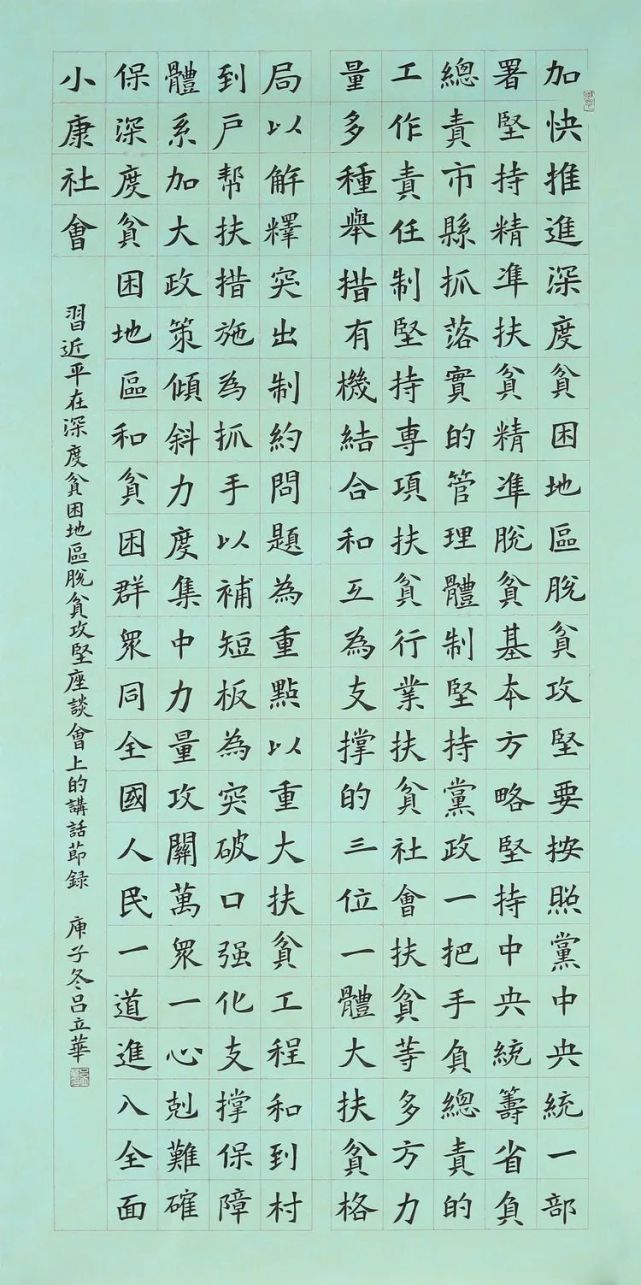 加快推進深度貧困地區脫貧攻堅要按照黨中央統一部
署堅持精準扶貧精準脫貧基本方略堅持中央統籌省負
總責市縣抓落實的管理體制堅持黨政一把手負總責的
工作責任制堅持專項扶貧行業扶貧社會扶貧等多方力
量多種舉措有機結合和互為支撐的三位一體大扶貧格
局以解釋突出制約問題為重點以重大扶貧工程和到村
到戶幫扶措施為抓手以補短板為突破口强化支撐保障
體系加大政策傾斜力度集中力量攻關萬眾一心剋難確
保深度貧困地區和貧困群眾同全國人民一道進入全面
小康社會
習近平在深度貧困地區脫貧攻堅座談會上的講話節録 庚子冬呂立華